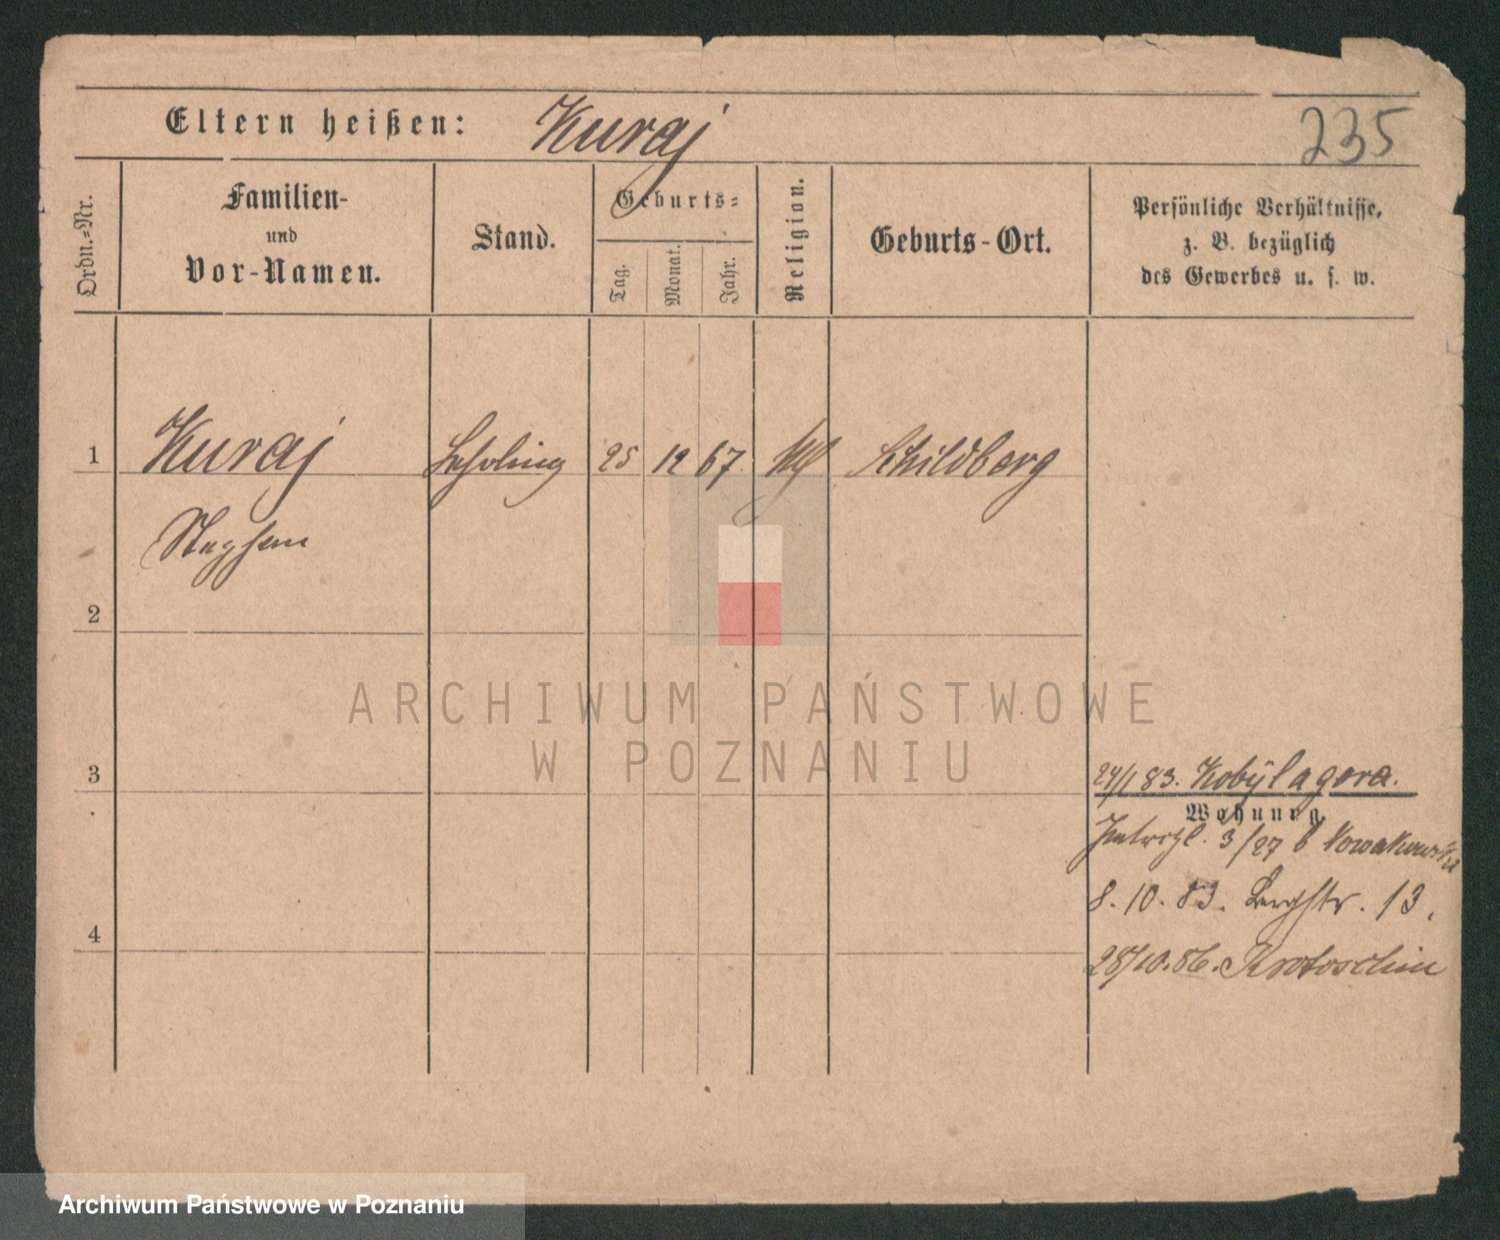 Eltern heißen: Kuraj
235
Ordn.-Nr.
Familien-
und
Vor-Namen.
Stand.
Geburts-
Tag.
Monat.
Jahr.
Religion.
Geburts-Ort.
Persönliche Verhältnisse,
z. B. bezüglich
des Gewerbes u. s. w.
1 Kuraj 25 12 67 Schildberg
Stephan
2
ARCHIWUM PAŃSTWOWE
W POZNANIU
3
24/1 83. Kobylagora.
Wohnung.
3/27 b Nowakowski
8. 10. 83. Bergstr. 13.
4
28/10. 86. Krotoschin
Archiwum Państwowe w Poznaniu